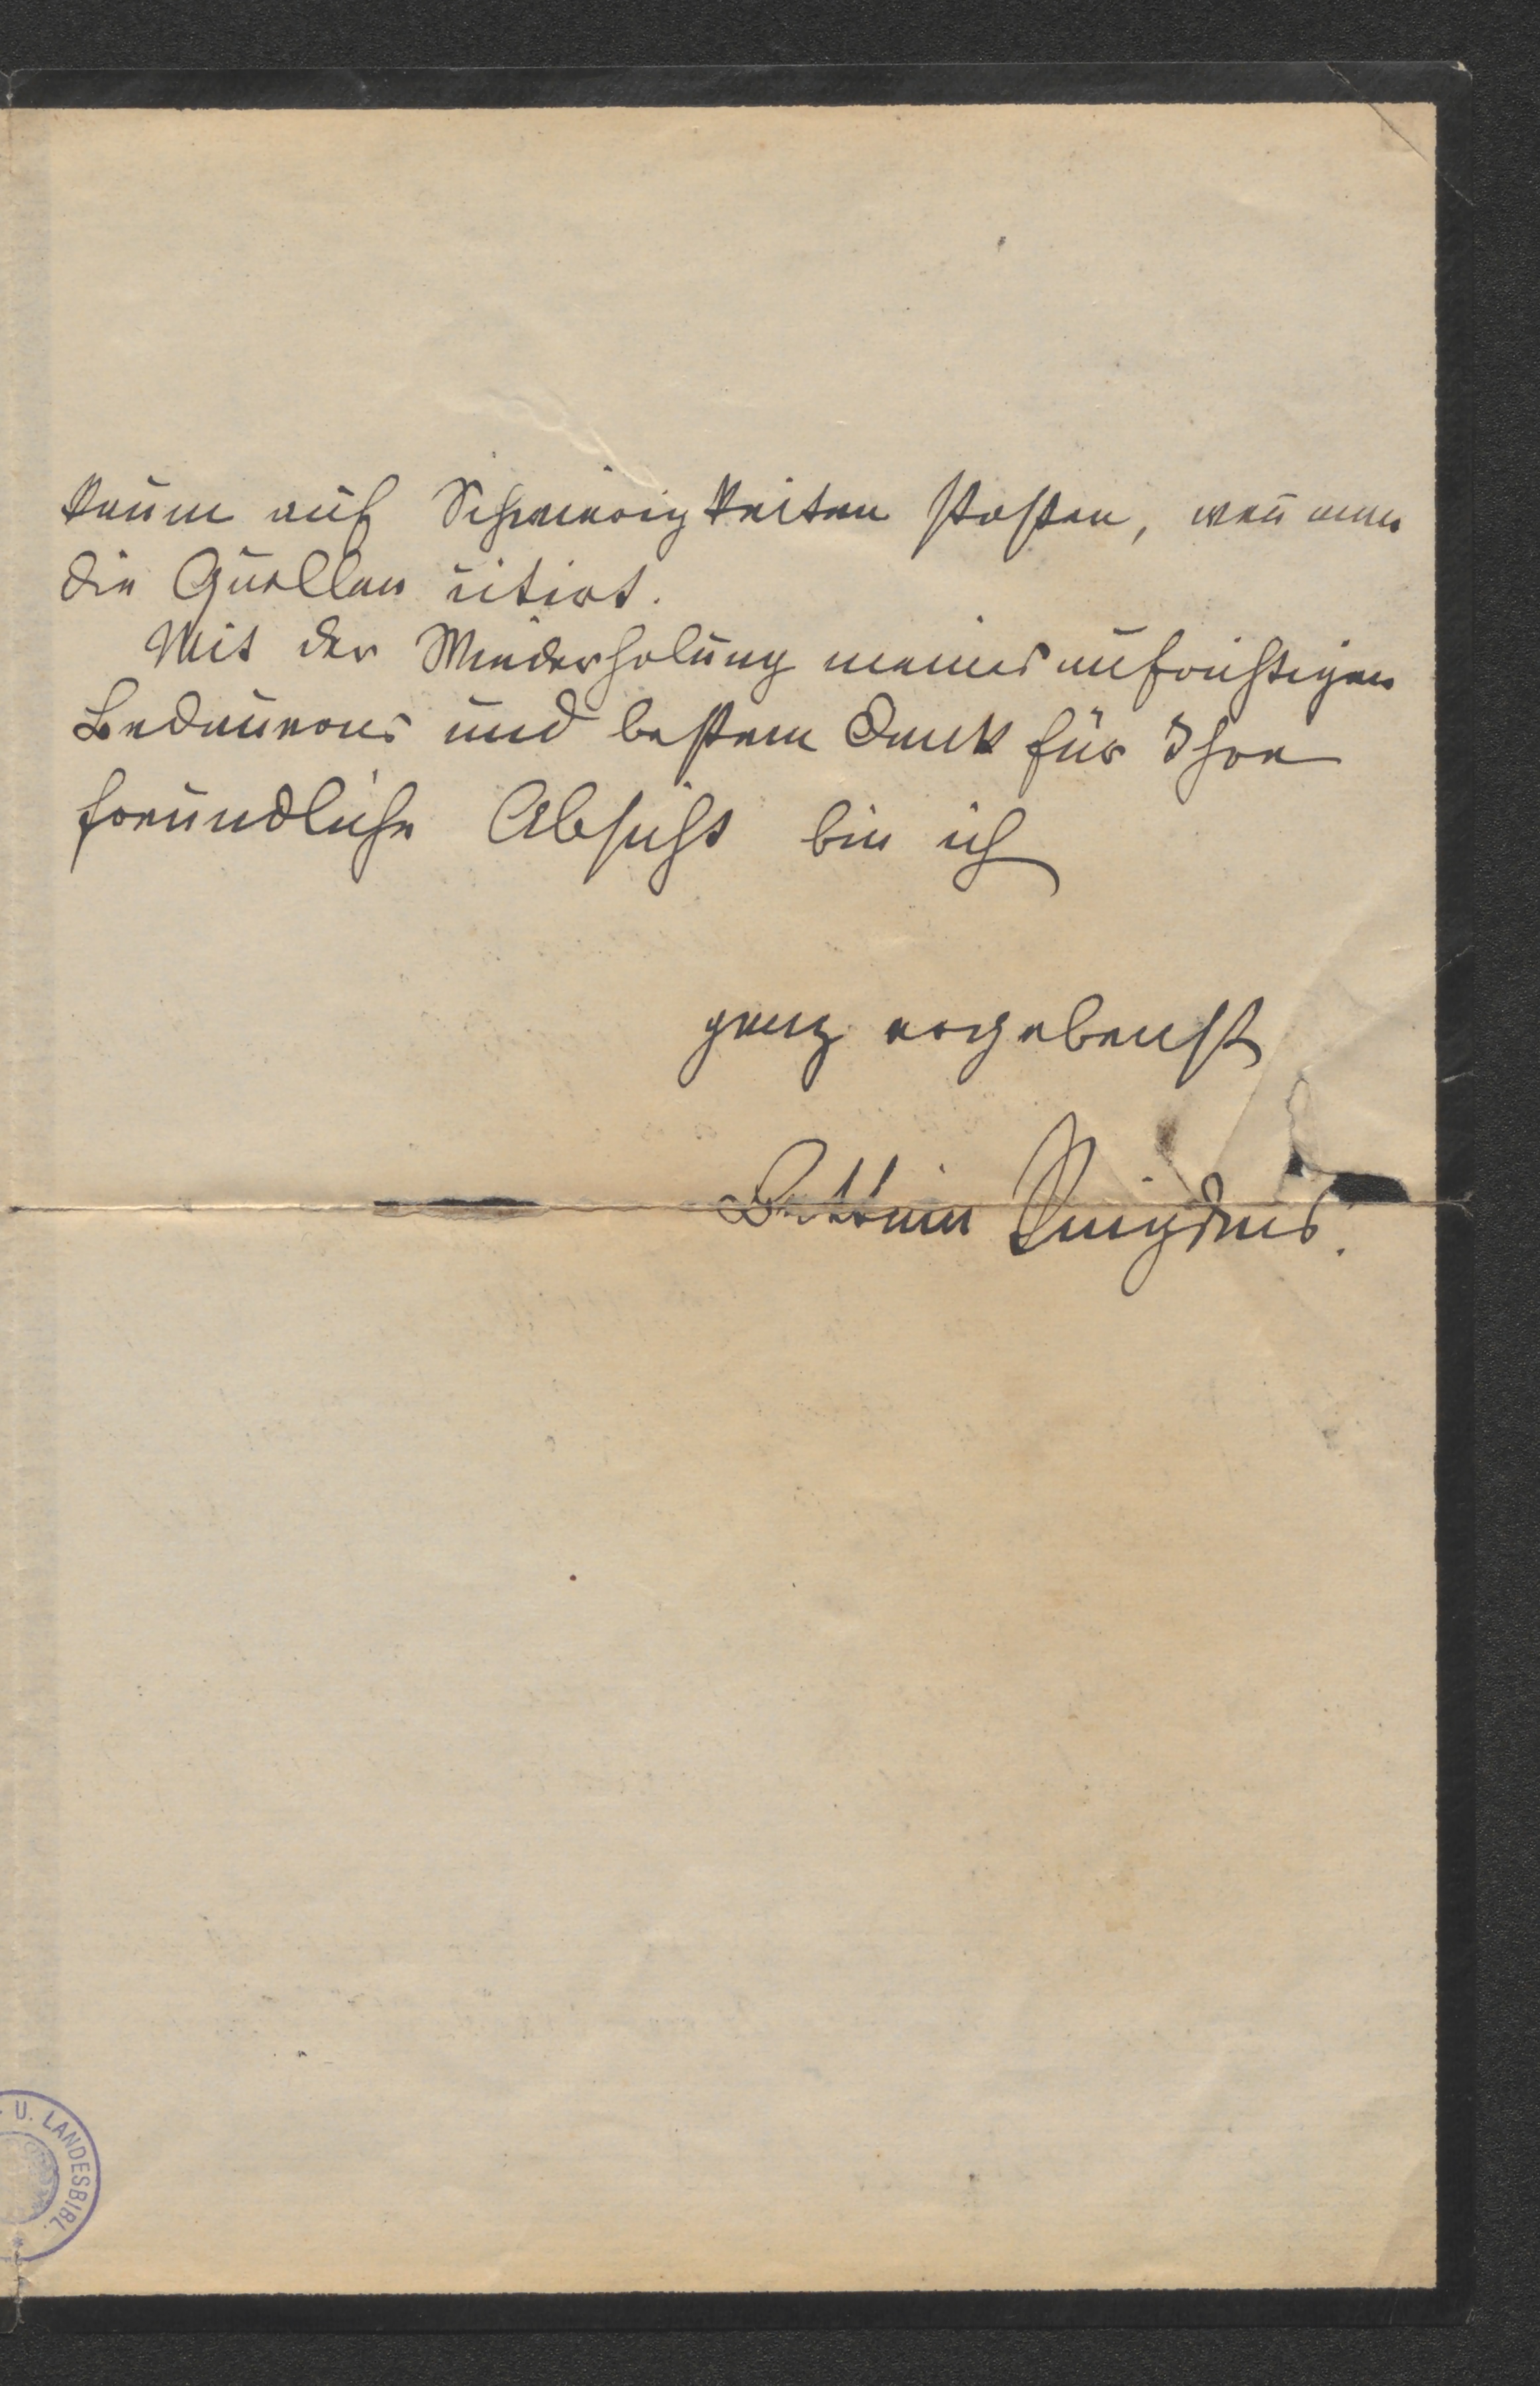 kaum auf Schwierigkeiten stoßen, weñ man
die Quellen citirt.
Mit der Wiederholung meines aufrichtigen
Bedauerns und bestem Dank für Ihre
freundliche Absicht bin ich
ganz ergebenst
U. LANDESBIBL.